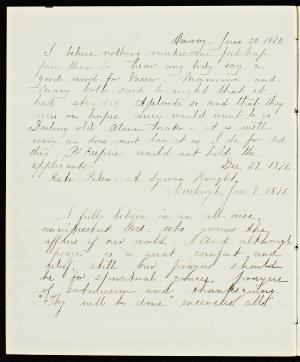 Conway, June 30. 1870.
I believe nothing makes me feel hap-
pier than to hear any body say a
good word for Vassar. Mamma and
Mary both said to night that it
had Adelaide so and that they
were in hopes Lucy would want to go.
Darling old Alma Mater - it is well
every one does not love it as I do for
they P'keepsie would not hold the
applicants.
Dec. 27. 1870.
Kate - A Wright,
Newburgh, Jan. 9. 1871.
I fully believe in an all-wise,
munificent God. who governs the
affairs of our world. And although
prayer is a great comfort and
relief, still our prayers should
be for spiritual graces, prayers
of submission and thanksgiving.
"Thy will be done" includes all